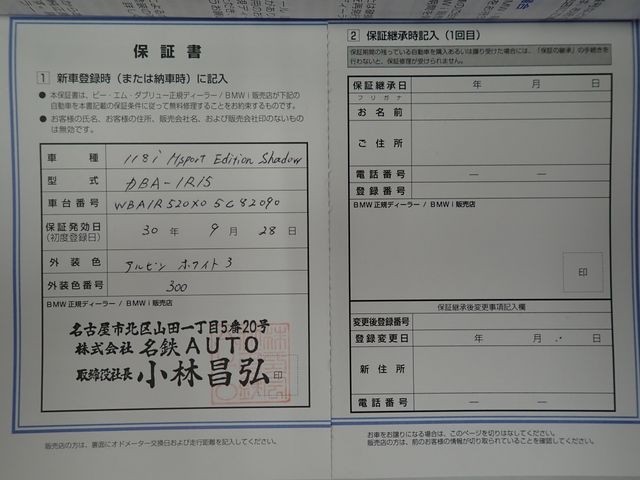 保証書
1 新車登録時（または納車時）に記入
● 本保証書は、ビー・エム・ダブリュー正規ディーラー/BMW i 販売店が下記の
自動車を本書記載の保証条件に従って無料修理することをお約束するものです。
● お客様の氏名、お客様の住所、販売会社名、および販売会社印のないもの
は無効です。
車種 118i Msport Edition Shadow
型式 DBA-1R15
車台番号 WBA1R520X05C82090
保証発効日 30 年 9 月 28 日
(初度登録日)
外装色 アルピン ホワイト3
外装色番号 300
BMW正規ディーラー / BMW i 販売店
名古屋市北区山田一丁目5番20号
株式会社 名鉄AUTO
取締役社長 小林昌弘 印
販売店の方は、裏面にオドメーター交換日および走行距離を記入してください。
2 保証継承時記入（1回目）
保証期間の残っている自動車を購入あるいは譲り受けた場合には、「保証の継承」の手続きを
行わないと、保証修理が受けられません。
保証継承日 年 月 日
フリガナ
お名前
ご住所
電話番号 — —
登録番号
BMW正規ディーラー / BMW i 販売店
印
保証継承後変更事項記入欄
変更後登録番号
登録変更日 年 月 日
新住所
電話番号 — —
お車をお譲りになる場合は、このページを切りはなしてください。
販売店の方は、前のお客様の情報が切り取られていることを確認してください。